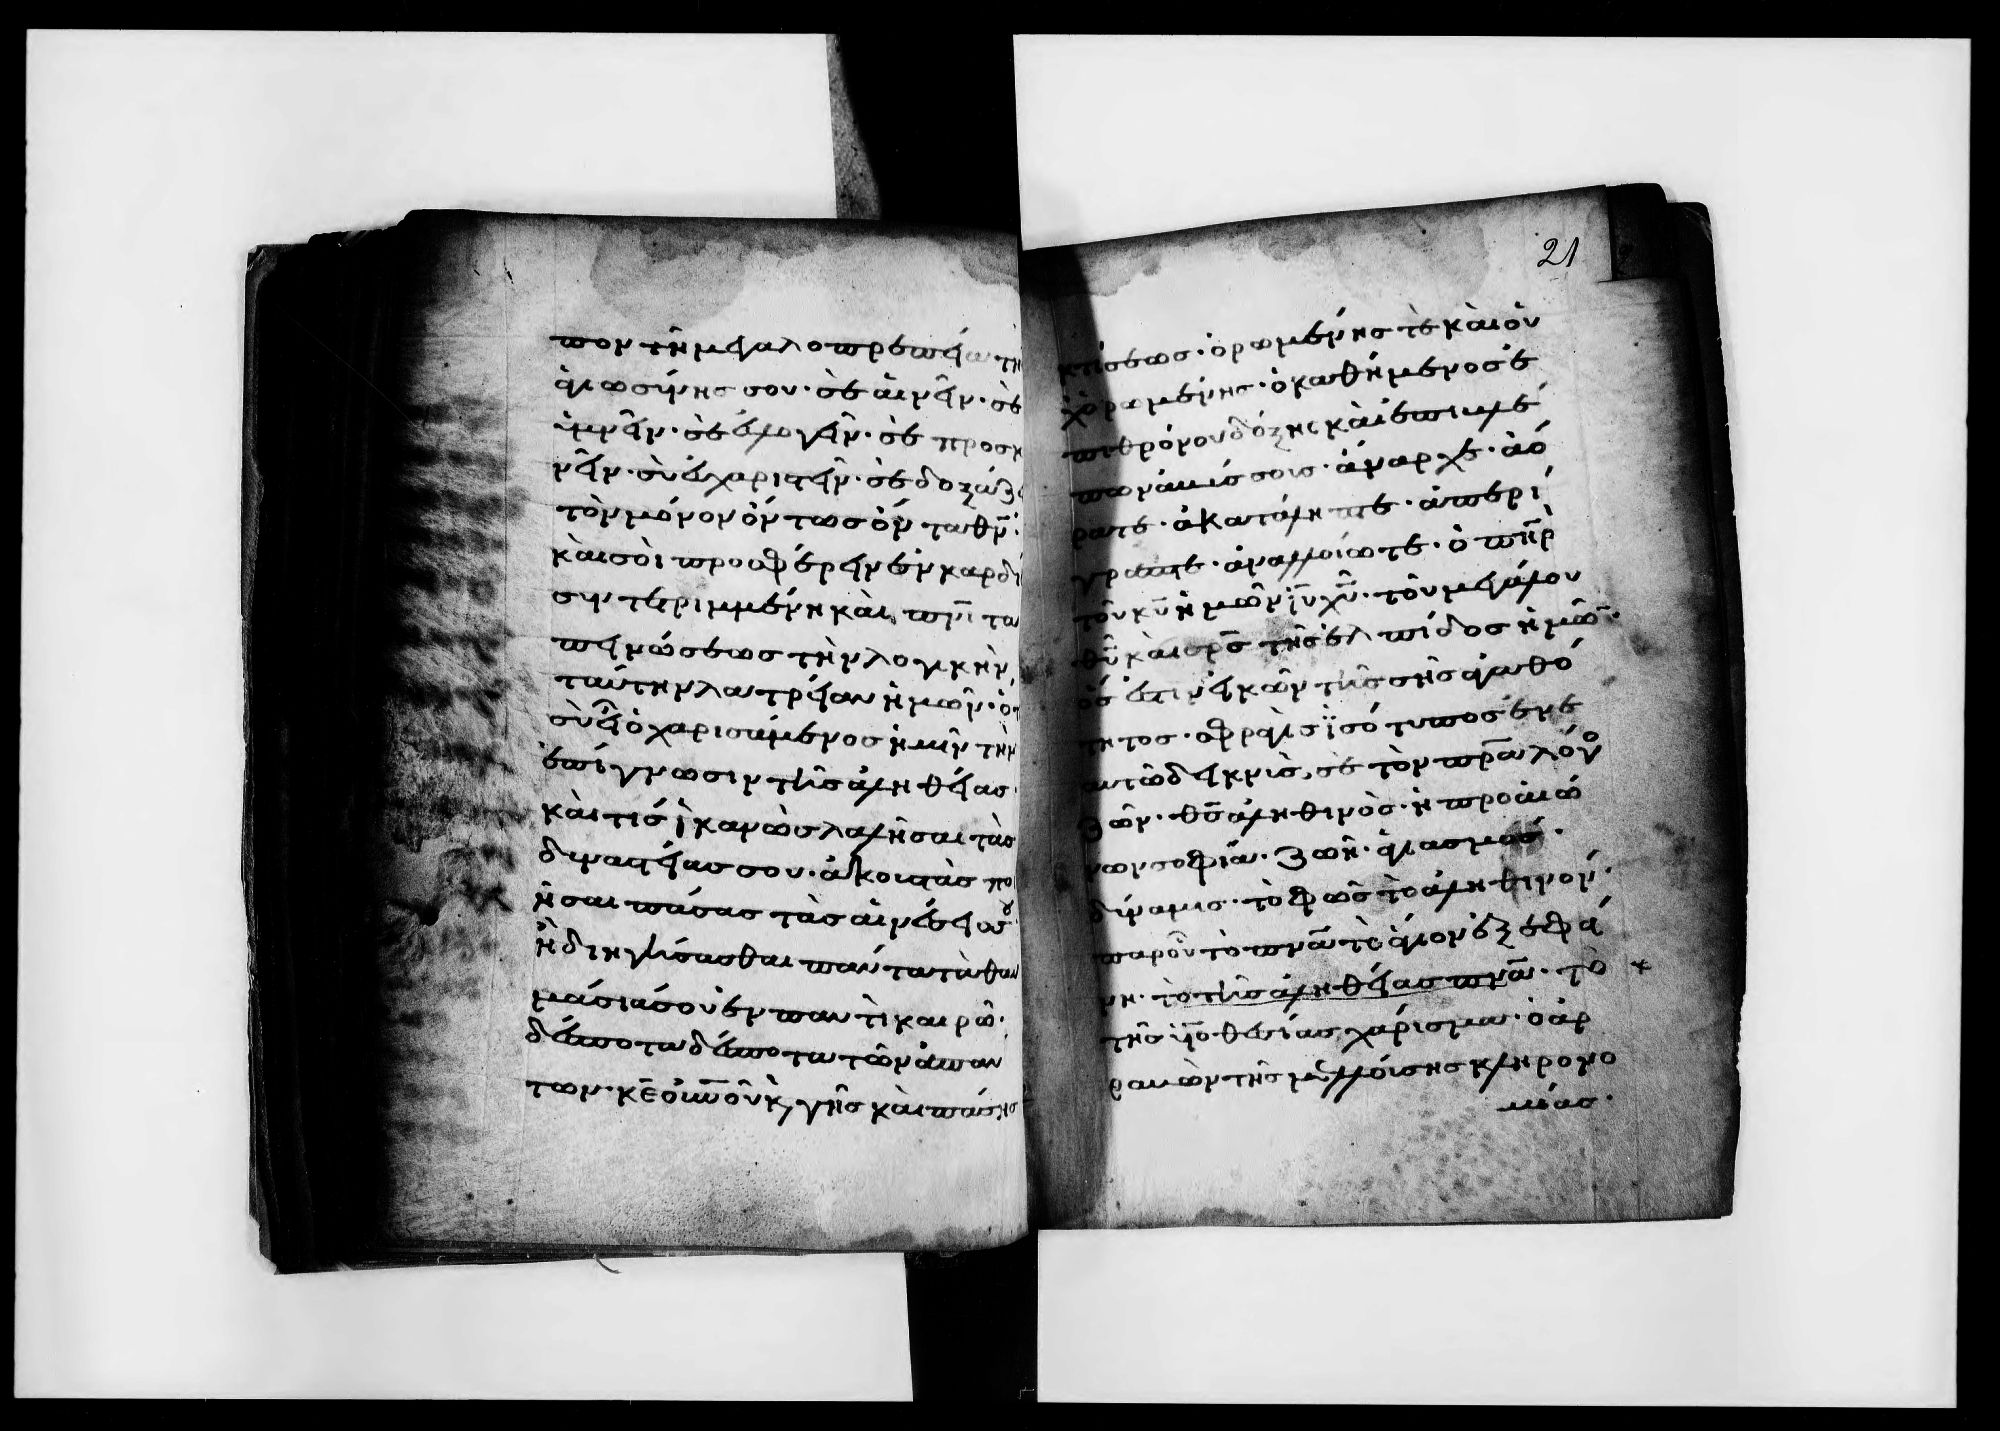 πον τῆ μεγαλοπρεπεία τῆ
ἁγιωσύνης σου· σὲ αἰνεῖν· σὲ
ὑμνεῖν· σὲ εὐλογεῖν· σὲ προσκ
νεῖν· σὺ εὐχαριστεῖν· σὲ δοξάζε
τὸν μόνον ὄντως ὄντα θν̅·
καὶ σοὶ προσφέρειν ἐν καρδί
συντετριμμένη καὶ πνι̅ τα
πεινώσεως τὴν λογικὴν
ταύτην λατρείαν ἡμῶν· ὅτ
σὺ εἶ ὁ χαρισάμενος ἡμῖν τὴν
ἐπίγνωσιν τῆς ἀληθείας·
καὶ τίς ἱκανὸς λαλῆσαι τὰς
δυναστείας σου· ἀκουστὰς ποι
ῆσαι πάσας τὰς αἰνέσεις σου
ἢ διηγήσασθαι πάντα τὰ θαυ
μάσιά σου ἐν παντὶ καιρῶ·
δέσποτα δέσποτα τῶν ἁπάν
των· κε̅ οὐνοῦ κ, γῆς καὶ πάσης
21
κτίσεως· ὁρωμένης τὲ καὶ οὐ
χ ὁρωμένης· ὁ καθήμενος ἐ
πι θρόνου δόξης καὶ ἐπιβλέ
πων ἀβύσσοις· ἄναρχε· ἀό
ρατε· ἀκατάληπτε· ἀπερί
γραπτε· ἀναλλοίωτε· ὁ πηρ̅
τοῦ κυ̅ ἡμῶν ιυ̅ χυ̅· τοῦ μεγάλου
θυ̅ καὶ σρ̅ς τῆς ἐλπίδος ἡμῶ̅·
ὅς ἐστιν εἰκὼν τῆς σῆς ἀγαθό
τητος· σφραγὶς ἰσότυπος ἐν ἑ
αυτῶ δεικνὺς, σὲ τὸν πρ̅α λόγο
ζῶν· θς̅ ἀληθινὸς· ἡ προαιώ
νων σοφία· ζωὴ· ἁγιασμός·
δύναμις· τὸ φῶς τὸ ἀληθινόν·
παρ οὗ τὸ πνα̅ τὸ ἅγιον ἐξεφά
νη· τὸ τῆς ἀληθείας πνα̅· τὸ +
τῆς υἱοθεσίας χάρισμα· ὁ ἀρ
ραβὼν τῆς μελλούσης κληρονο
μίας·